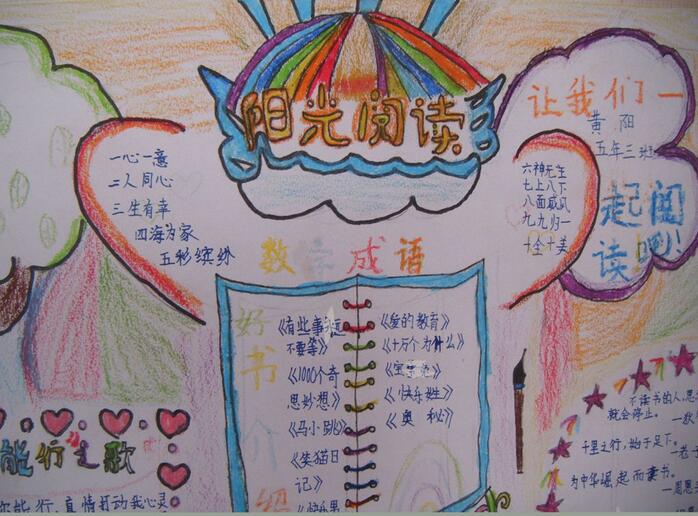 阳光阅读
让我们一
黄阳
五年二班
起阅
读吧!
一心一意
二人同心
三生有幸
四海为家
五彩缤纷
六神无主
七上八下
八面威风
九九归一
十全十美
数字成语
好书介绍
《有些事
不要等》
《1000个奇
思妙想》
《马小跳》
《笑猫日
记》
《快乐男
《爱的教育》
《十万个为什么》
《快乐姓》
《奥秘》
能行之歌
能行,真情打动我心灵
不读书的人,思
就会停止。
千里之行,始于足下。
一老子
为中华崛起而读书。
一周恩